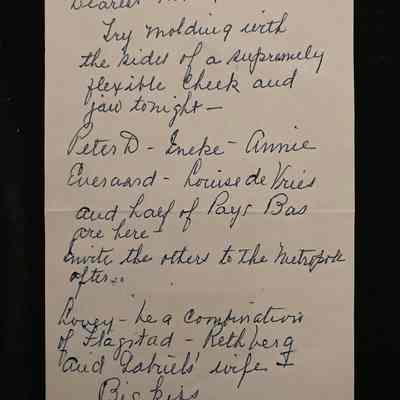 Dearest
Try molding with
the sides of a supremely
flexible cheek and
jaw tonight —
Peter D - Ineke - Annie
Everaard - Louise de Vries
and half of Pays Bas
are here -
Invite the others to the Metropole
after..
Lovey - be a combination
of Flagstad - Rethberg
and Gabriels' wife -
Big kiss